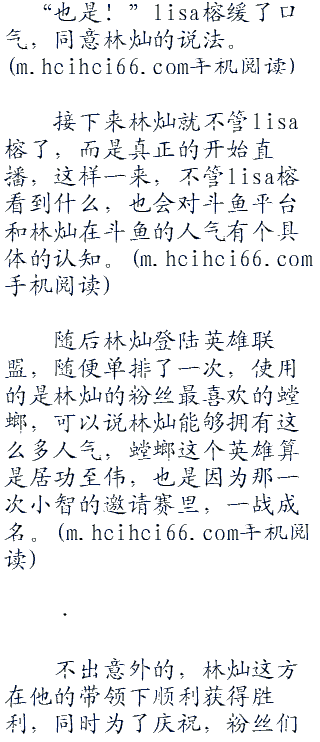 “也是！”lisa榕缓了口
气，同意林灿的说法。
(m.hcihci66.com手机阅读)
接下来林灿就不管lisa
榕了，而是真正的开始直
播，这样一来，不管lisa榕
看到什么，也会对斗鱼平台
和林灿在斗鱼的人气有个具
体的认知。(m.hcihci66.com
手机阅读)
随后林灿登陆英雄联
盟，随便单排了一次，使用
的是林灿的粉丝最喜欢的螳
螂，可以说林灿能够拥有这
么多人气，螳螂这个英雄算
是居功至伟，也是因为那一
次小智的邀请赛里，一战成
名。(m.hcihci66.com手机阅
读)
．
不出意外的，林灿这方
在他的带领下顺利获得胜
利，同时为了庆祝，粉丝们